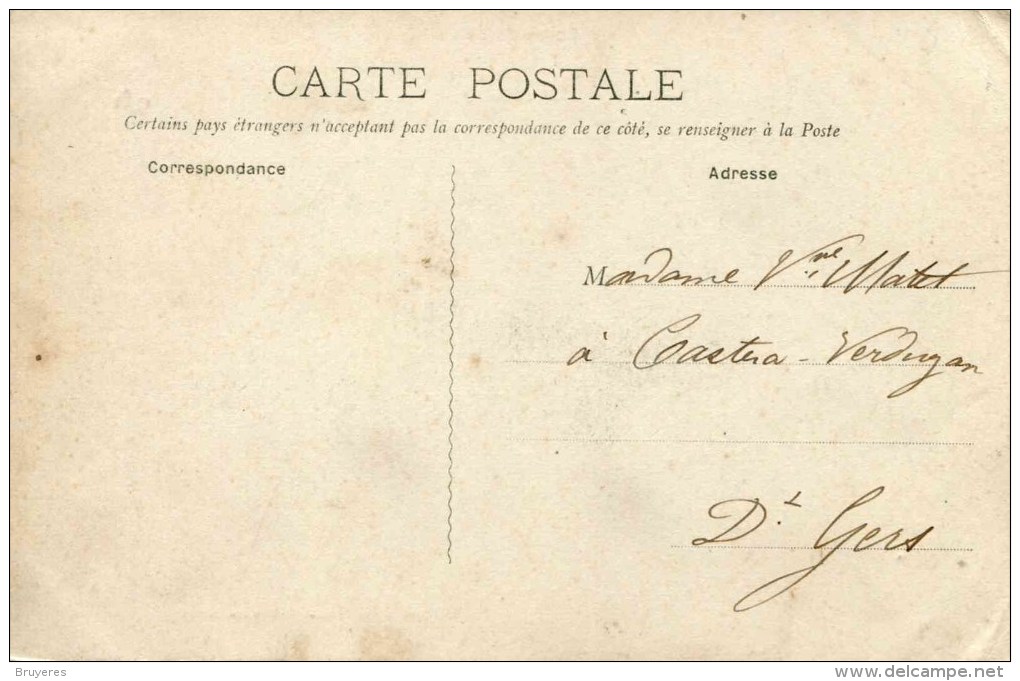 CARTE POSTALE
Certains pays étrangers n'acceptant pas la correspondance de ce côté, se renseigner à la Poste
Correspondance
Adresse
Madame Vve Matet
à Castera-Verduzan
Dt. Gers
Bruyeres
www.delcampe.net